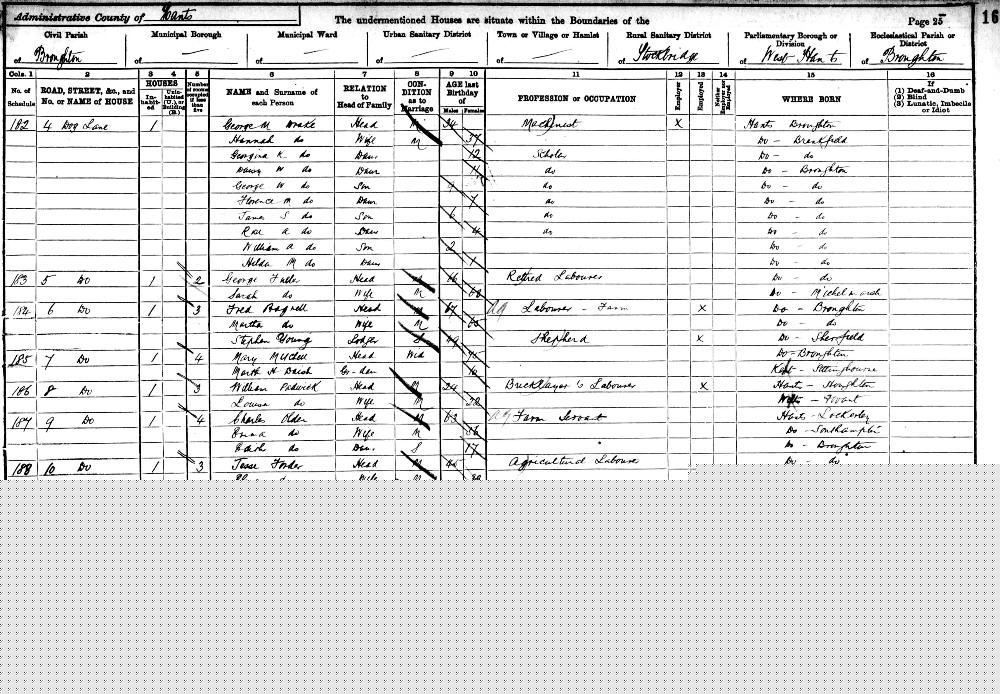 Administrative County of Hants The undermentioned Houses are situate within the Boundaries of the Page 25 16
Civil Parish Municipal Borough Municipal Ward Urban Sanitary District Town or Village or Hamlet Rural Sanitary District Parliamentary Borough or Division Ecclesiastical Parish or District
of Broughton of of of of of Stockbridge of West Hants of Broughton
Cols. 1 2 3 4 5 6 7 8 9 10 11 12 13 14 15 16
No. of Schedule ROAD, STREET, &c., and No. or NAME of HOUSE HOUSES Inhabited Uninhabited (U.), or Building (B.) Number of rooms occupied if less than five NAME and Surname of each Person RELATION to Head of Family CONDITION as to Marriage AGE last Birthday of Males Females PROFESSION or OCCUPATION Employer Employed Neither Employer nor Employed WHERE BORN If (1) Deaf-and-Dumb (2) Blind (3) Lunatic, Imbecile or Idiot
182 4 Dog Lane 1 George M Drake Head M 34 Machinist X Hants Broughton
Hannah do Wife M 37 Do -
Georgina K do Daur 12 Scholar Do - do
Daisy W do Daur 11 do Do - Broughton
George W do Son do Do - do
Florence M do Daur 7 do Do - do
James S do Son 6 do Do - do
Rose A do Daur 4 do Do - do
William A do Son 2 Do - do
Hilda M do Daur 1 Do - do
183 5 Do 1 2 George Head 66 Retired Labourer Do - do
Sarah do Wife M 68 Do - Michelmarsh
184 6 Do 1 3 Fred Head M 67 Ag Labourer - Farm X Do - Broughton
Martha do Wife M 65 Do - do
Stephen Young Lodger S Shepherd X Do -
185 7 Do 1 4 Mary Head Wid Do - Broughton
H Gr-dau 16 Kent - Sittingbourne
186 8 Do 1 3 William Padwick Head M 24 Bricklayers Labourer X Hants - Houghton
Louisa do Wife M 22 Wilts -
187 9 Do 1 4 Charles Olden Head M 63 Ag Farm Servant Hants - Lockerley
Emma do Wife M Do - Southampton
do Dau. S 17 Do - Broughton
188 10 Do 1 3 Jesse Head M Agricultural Labourer Do - do
Wife M